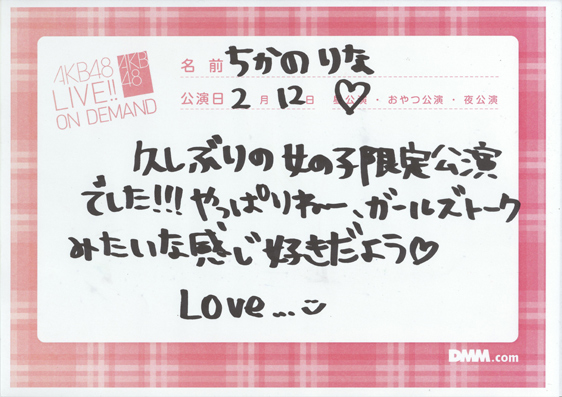 AKB48
LIVE!!
ON DEMAND
AKB
48
名前 ちかの りな
公演日 2月 12日 昼公演・おやつ公演・夜公演
♡
久しぶりの女の子限定公演
でした!!! やっぱりねー、ガールズトーク
みたいな感じ好きだよう♡
Love...
DMM.com